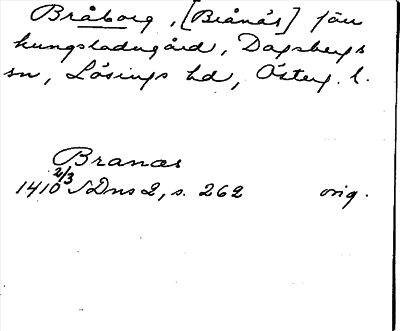 Bråborg, [Brånäs] förr
kungsladugård, Dagsbergs
sn, Lösings hd, Österg. l.
Branæs
1410 2/3 SDns 2, s. 262 orig.